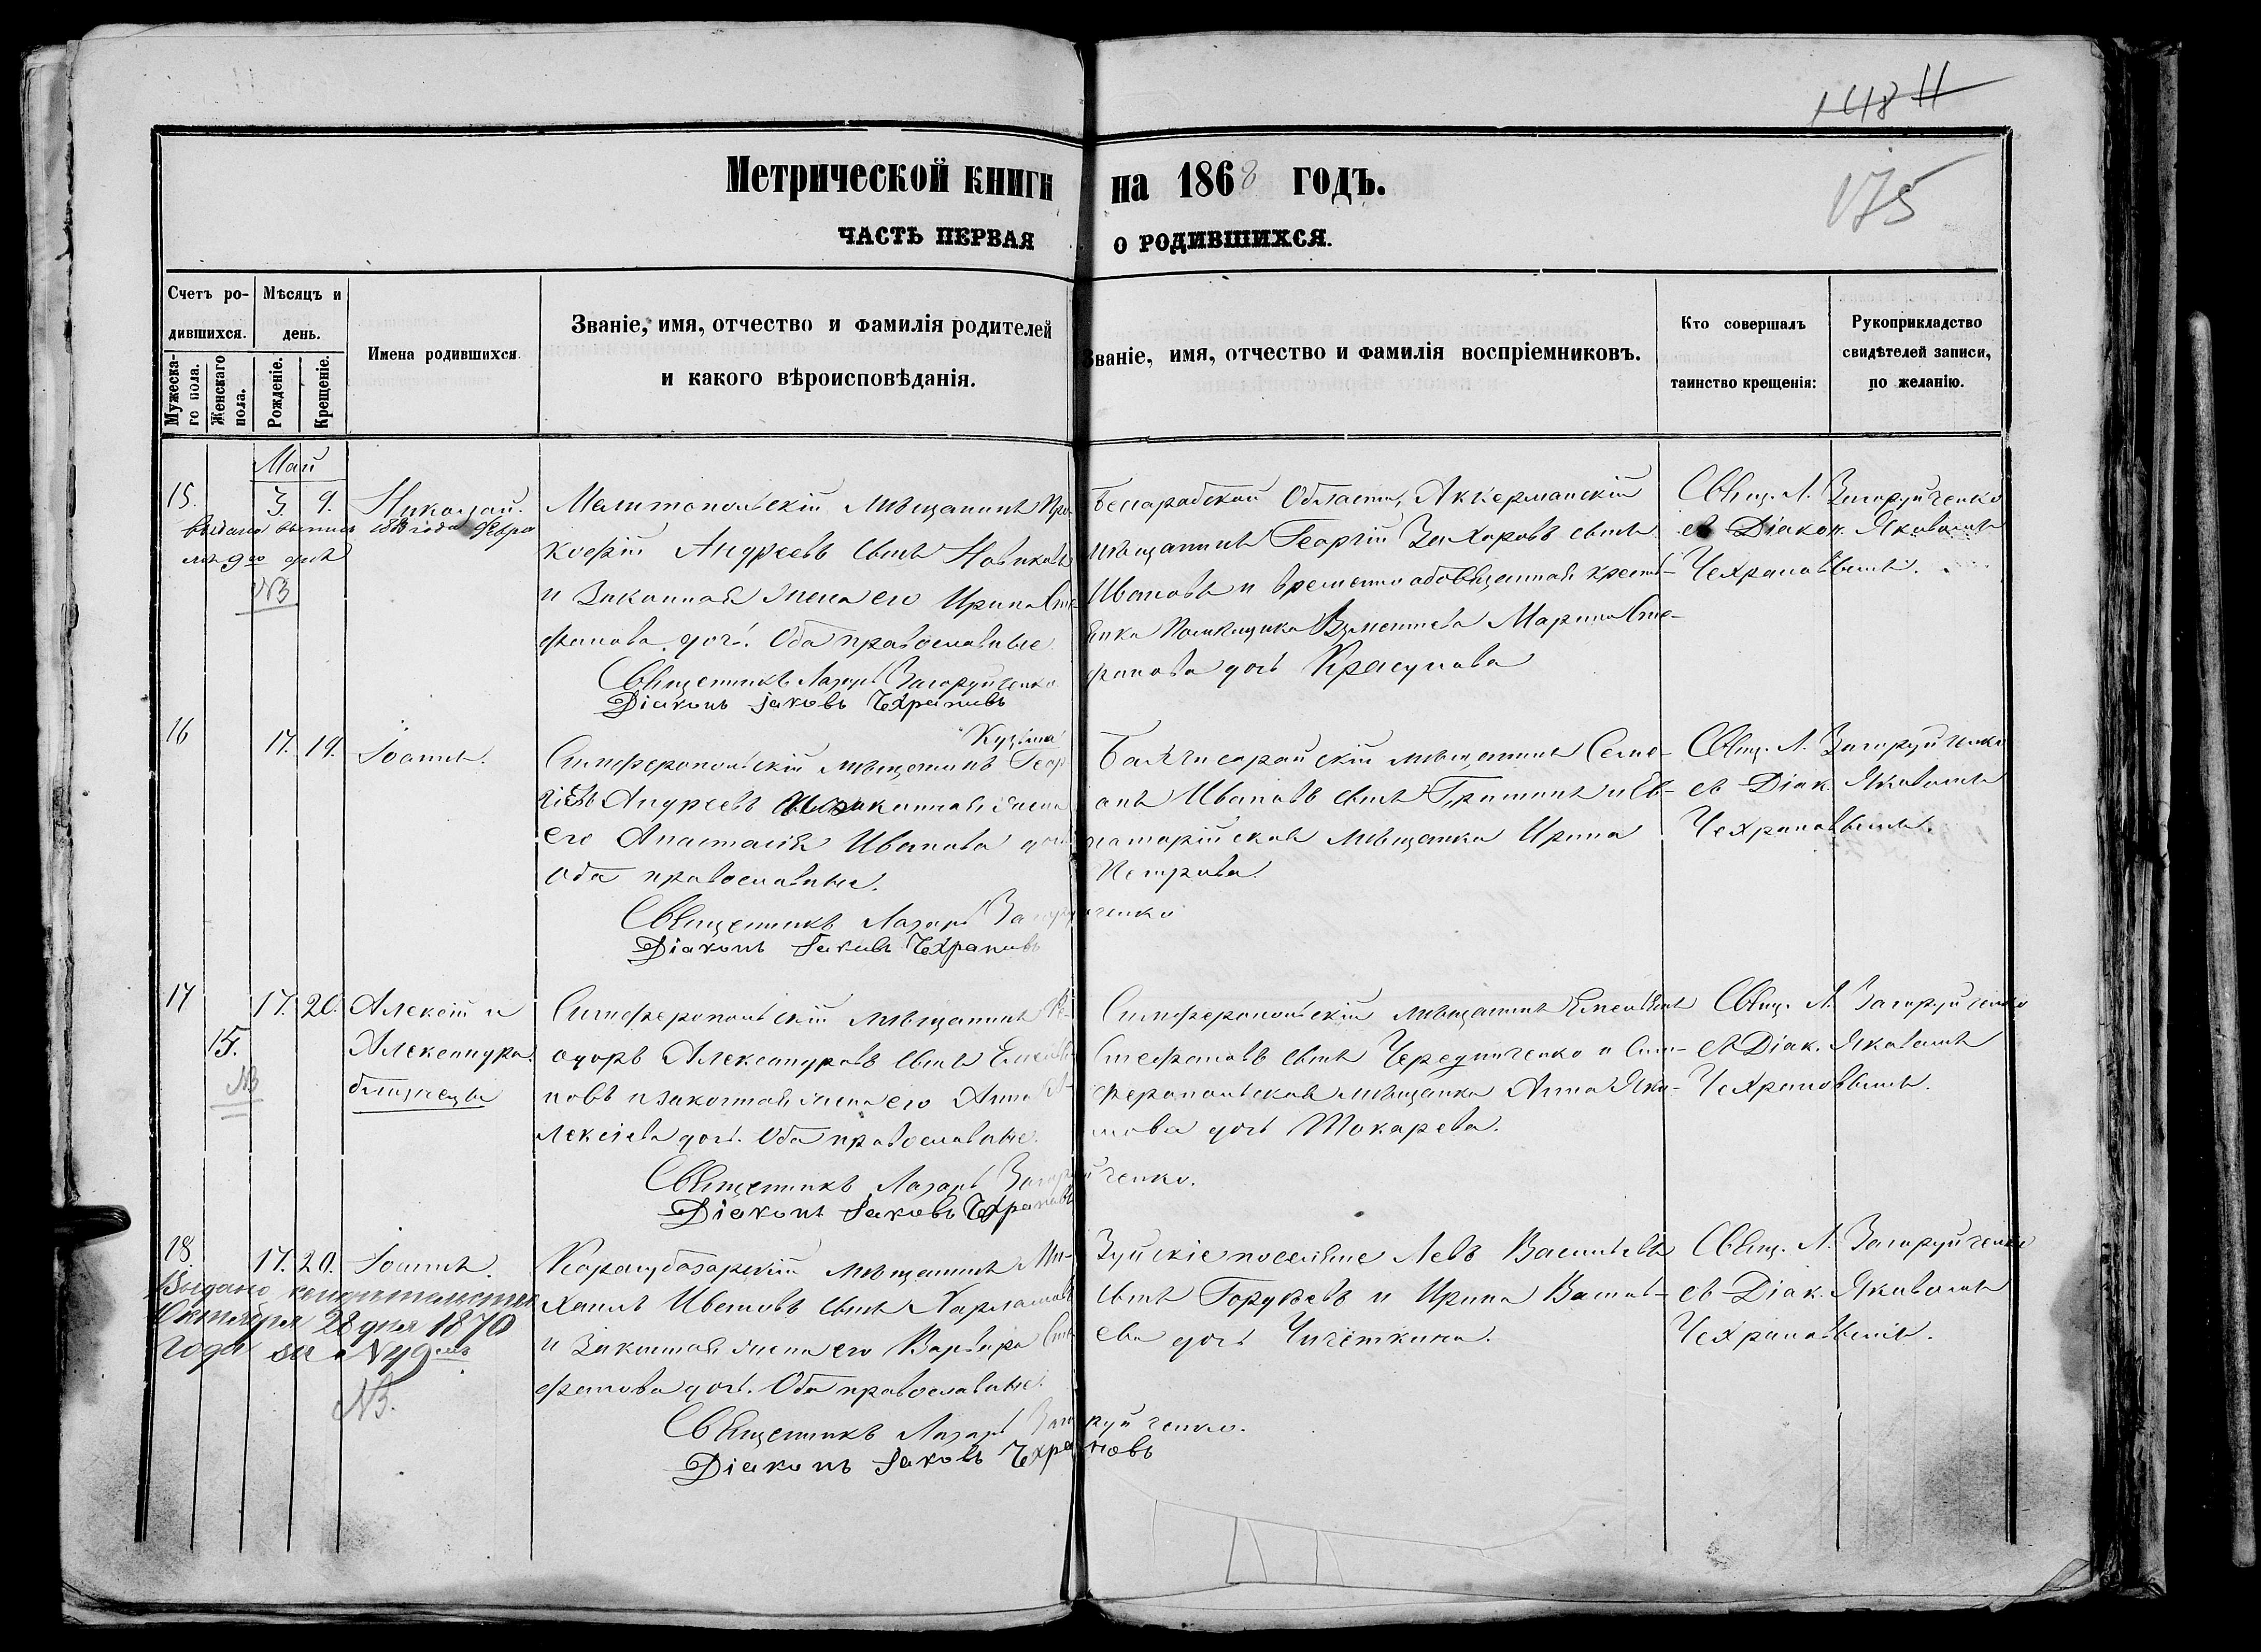 148 11
175
Метрической книги на 1868 годъ.
ЧАСТЬ ПЕРВАЯ О РОДИВШИХСЯ.
Счетъ ро-
дившихся.
Мужеска-
го пола.
Женскаго
пола.
Мѣсяцъ и
день.
Рожденіе.
Крещеніе.
Имена родившихся.
Званіе, имя, отчество и фамилія родителей
и какого вѣроисповѣданія.
Званіе, имя, отчество и фамилія воспріемниковъ.
Кто совершалъ
таинство крещенія:
Рукоприкладство
свидѣтелей записи,
по желанію.
Май
15. 3. 9. Николай.
Выдана выпись года Февра
ля 9го дня
NB
Мелитопольскій мѣщанинъ Про-
кофій Андреевъ сынъ Новиковъ
и законная жена его Ирина Сте-
фанова дочь. Оба православные
Священникъ Лазарь Загоруйченко
Діаконъ Іаковъ Чехрановъ
Бессарабской Области, Аккерманскій
мѣщанинъ Георгій Захаровъ сынъ
Ивановъ и временно обовѣщанная кресть-
янка помѣщика Марина Сте-
фанова дочь Красунова
Свящ. Л. Загоруйченко
съ Діакон. Яковомъ
Чехрановымъ.
16 17. 19. Іоаннъ.
Кузьма
Симферопольскій мѣщанинъ Геор-
гіевъ Андреевъ и законная жена
его Анастасія Иванова дочь
Оба православные.
Священникъ Лазарь Загоруйченко
Діаконъ Іаковъ Чехрановъ
Бахчисарайскій мѣщанинъ Симе-
онъ Ивановъ сынъ и Ев-
паторійская мѣщанка Ирина
Петрова.
Свящ. Л. Загоруйченко
съ Діак. Яковомъ
Чехрановымъ.
17 17. 20. Алексій и
15. Александра.
NB близнецы
Симферопольскій мѣщанинъ Ѳе-
одоръ Александровъ сынъ
новъ и законная жена его Анна А-
лексіева дочь. Оба православные.
Священникъ Лазарь Загоруйченко.
Діаконъ Іаковъ Чехрановъ
Симферопольскій мѣщанинъ Емельянъ
Стефановъ сынъ Чередниченко и Сим-
феропольская мѣщанка Анна Яко-
влева дочь Токарева.
Свящ. Л. Загоруйченко
съ Діак. Яковомъ
Чехрановымъ.
18. 17. 20. Іоаннъ.
Выдано
Октября 28 дня 1870
года за № 49мъ
NB.
Карасубазарскій мѣщанинъ Ми-
хаилъ Ивановъ сынъ Харламовъ
и законная жена его Варвара Сте-
фанова дочь. Оба православные.
Священникъ Лазарь Загоруйченко.
Діаконъ Іаковъ Чехрановъ
Зуйскіе поселяне Левъ Васильевъ
сынъ Горуневъ и Ирина Василь-
ева дочь Чичёткина.
Свящ. Л. Загоруйченко
съ Діак. Яковомъ
Чехрановымъ.